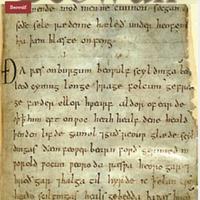 Beowulf
mende mod men ne cunnon secgan
soðe sele rædenne hæleð under heofenum
hwa þæm hlæste onfeng.
Ða wæs on burgum beowulf scyldinga
leod cyning longe þrage folcum gefræ
ge fæder ellor hwearf aldor of earde
him eft onwoc heah healfdene heold
þenden lifde gamol guð reouw glæde scyl
dingas ðæm feower bearn forð gerimed in
worold wocun weoroda ræswa heoro gar
gar halga til hyrde ic elan cwen
scilfingas heals gebedda